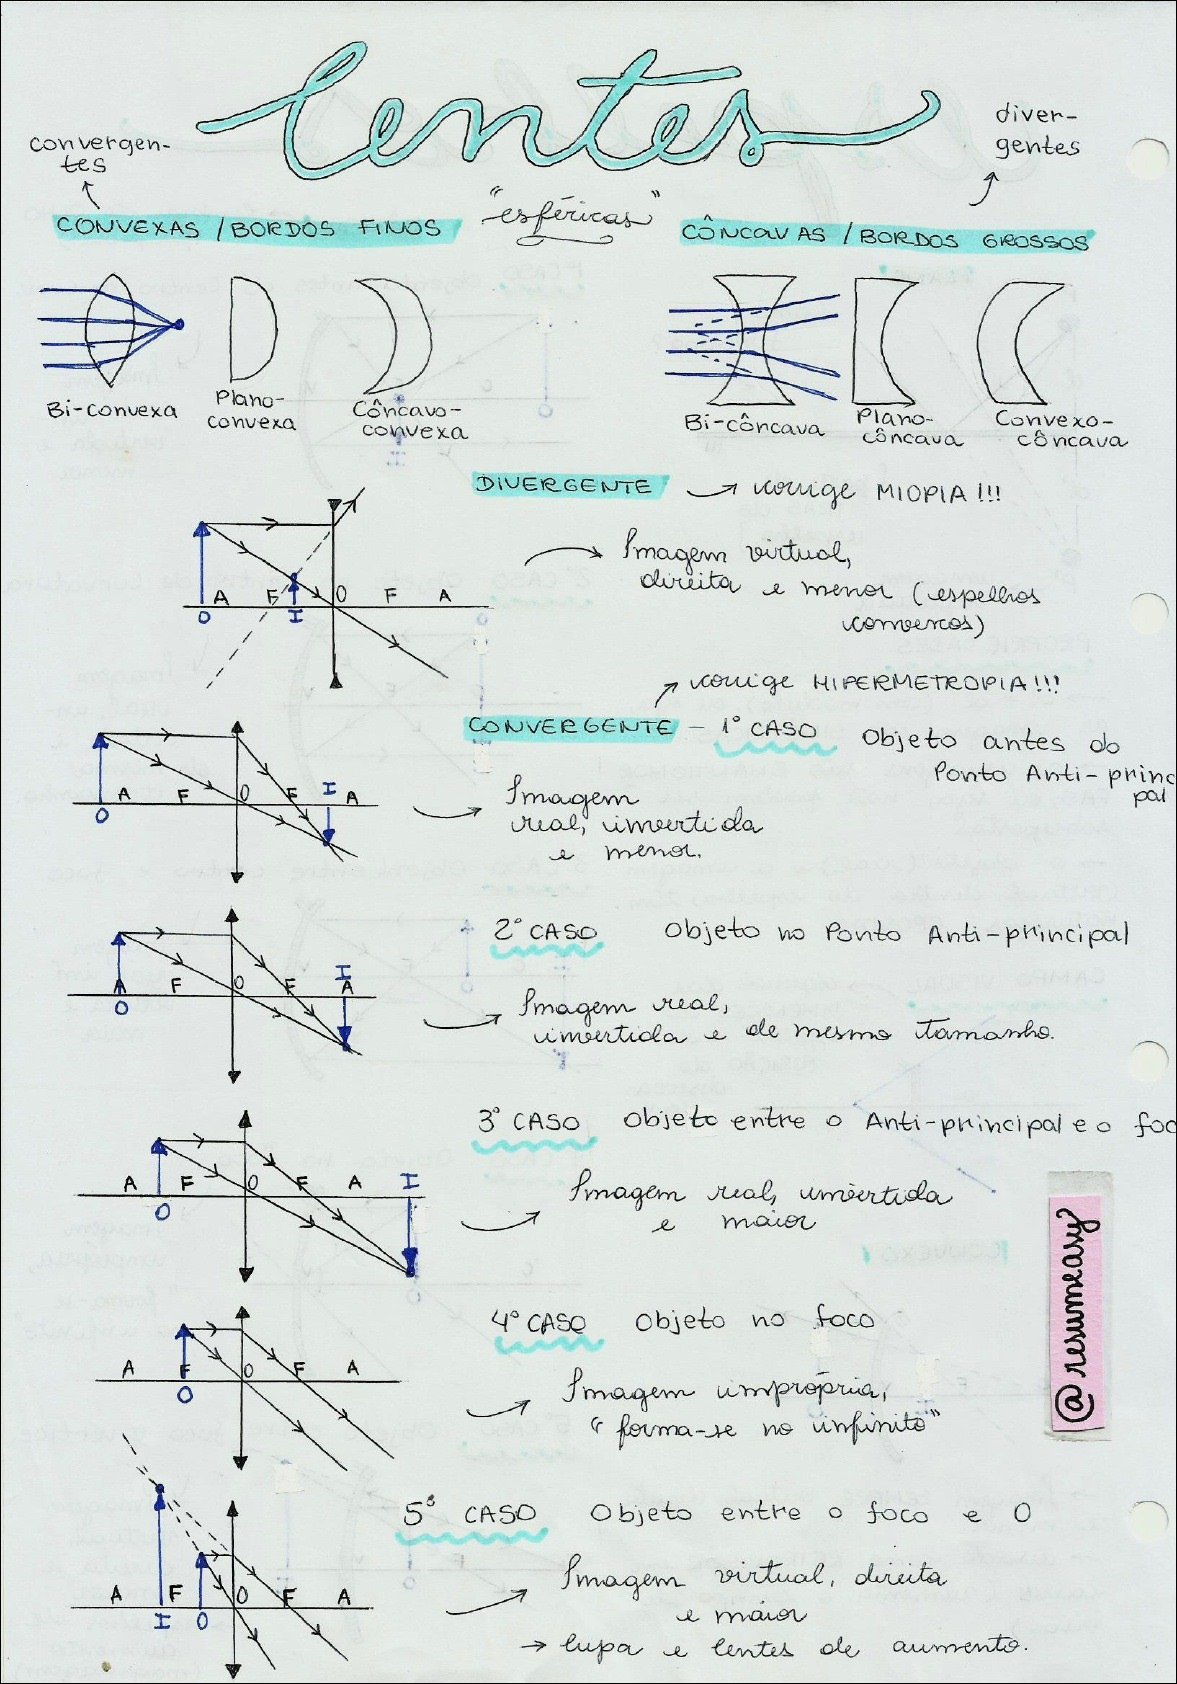 lentes
"esféricas"
convergen-
tes
CONVEXAS / BORDOS FINOS
diver-
gentes
CÔNCAVAS / BORDOS GROSSOS
Bi-convexa
Plano-
convexa
Côncavo-
convexa
Bi-côncava
Plano-
côncava
Convexo-
côncava
DIVERGENTE → corrige MIOPIA!!!
Imagem virtual,
direita e menor (espelhos
convexos)
A F I O F A
O
→ corrige HIPERMETROPIA!!!
CONVERGENTE - 1º CASO Objeto antes do
Ponto Anti-princ
pal
A F O F I A
O
Imagem
real, invertida
e menor.
2º CASO Objeto no Ponto Anti-principal
A F O F I A
O
Imagem real,
invertida e de mesmo tamanho.
3º CASO Objeto entre o Anti-principal e o foc
A F O F A I
O
Imagem real, invertida
e maior
4º CASO Objeto no foco
A F O F A
O
Imagem imprópria,
"forma-se no infinito"
5º CASO Objeto entre o foco e O
A F O F A
I O
Imagem virtual, direita
e maior
→ lupa e lentes de aumento.
@resumeasy